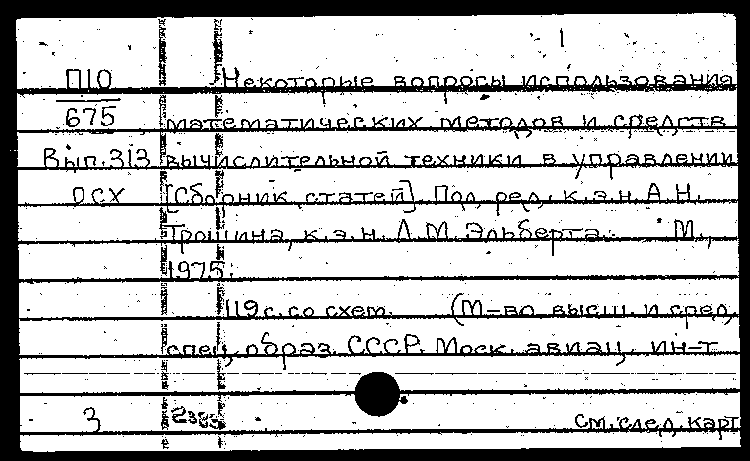 1
П10 Некоторые вопросы использования
675 математических методов и средств
Вып.313 вычислительной техники в управлении
ОСХ [Сборник статей]. Под ред. к.э.н. А.Н.
Трошина, к.э.н. Л.М. Эльберта. М.,
1975.
119 с. со схем. (М-во высш. и сред.
спец. образ. СССР. Моск. авиац. ин-т
3 см. след. карт